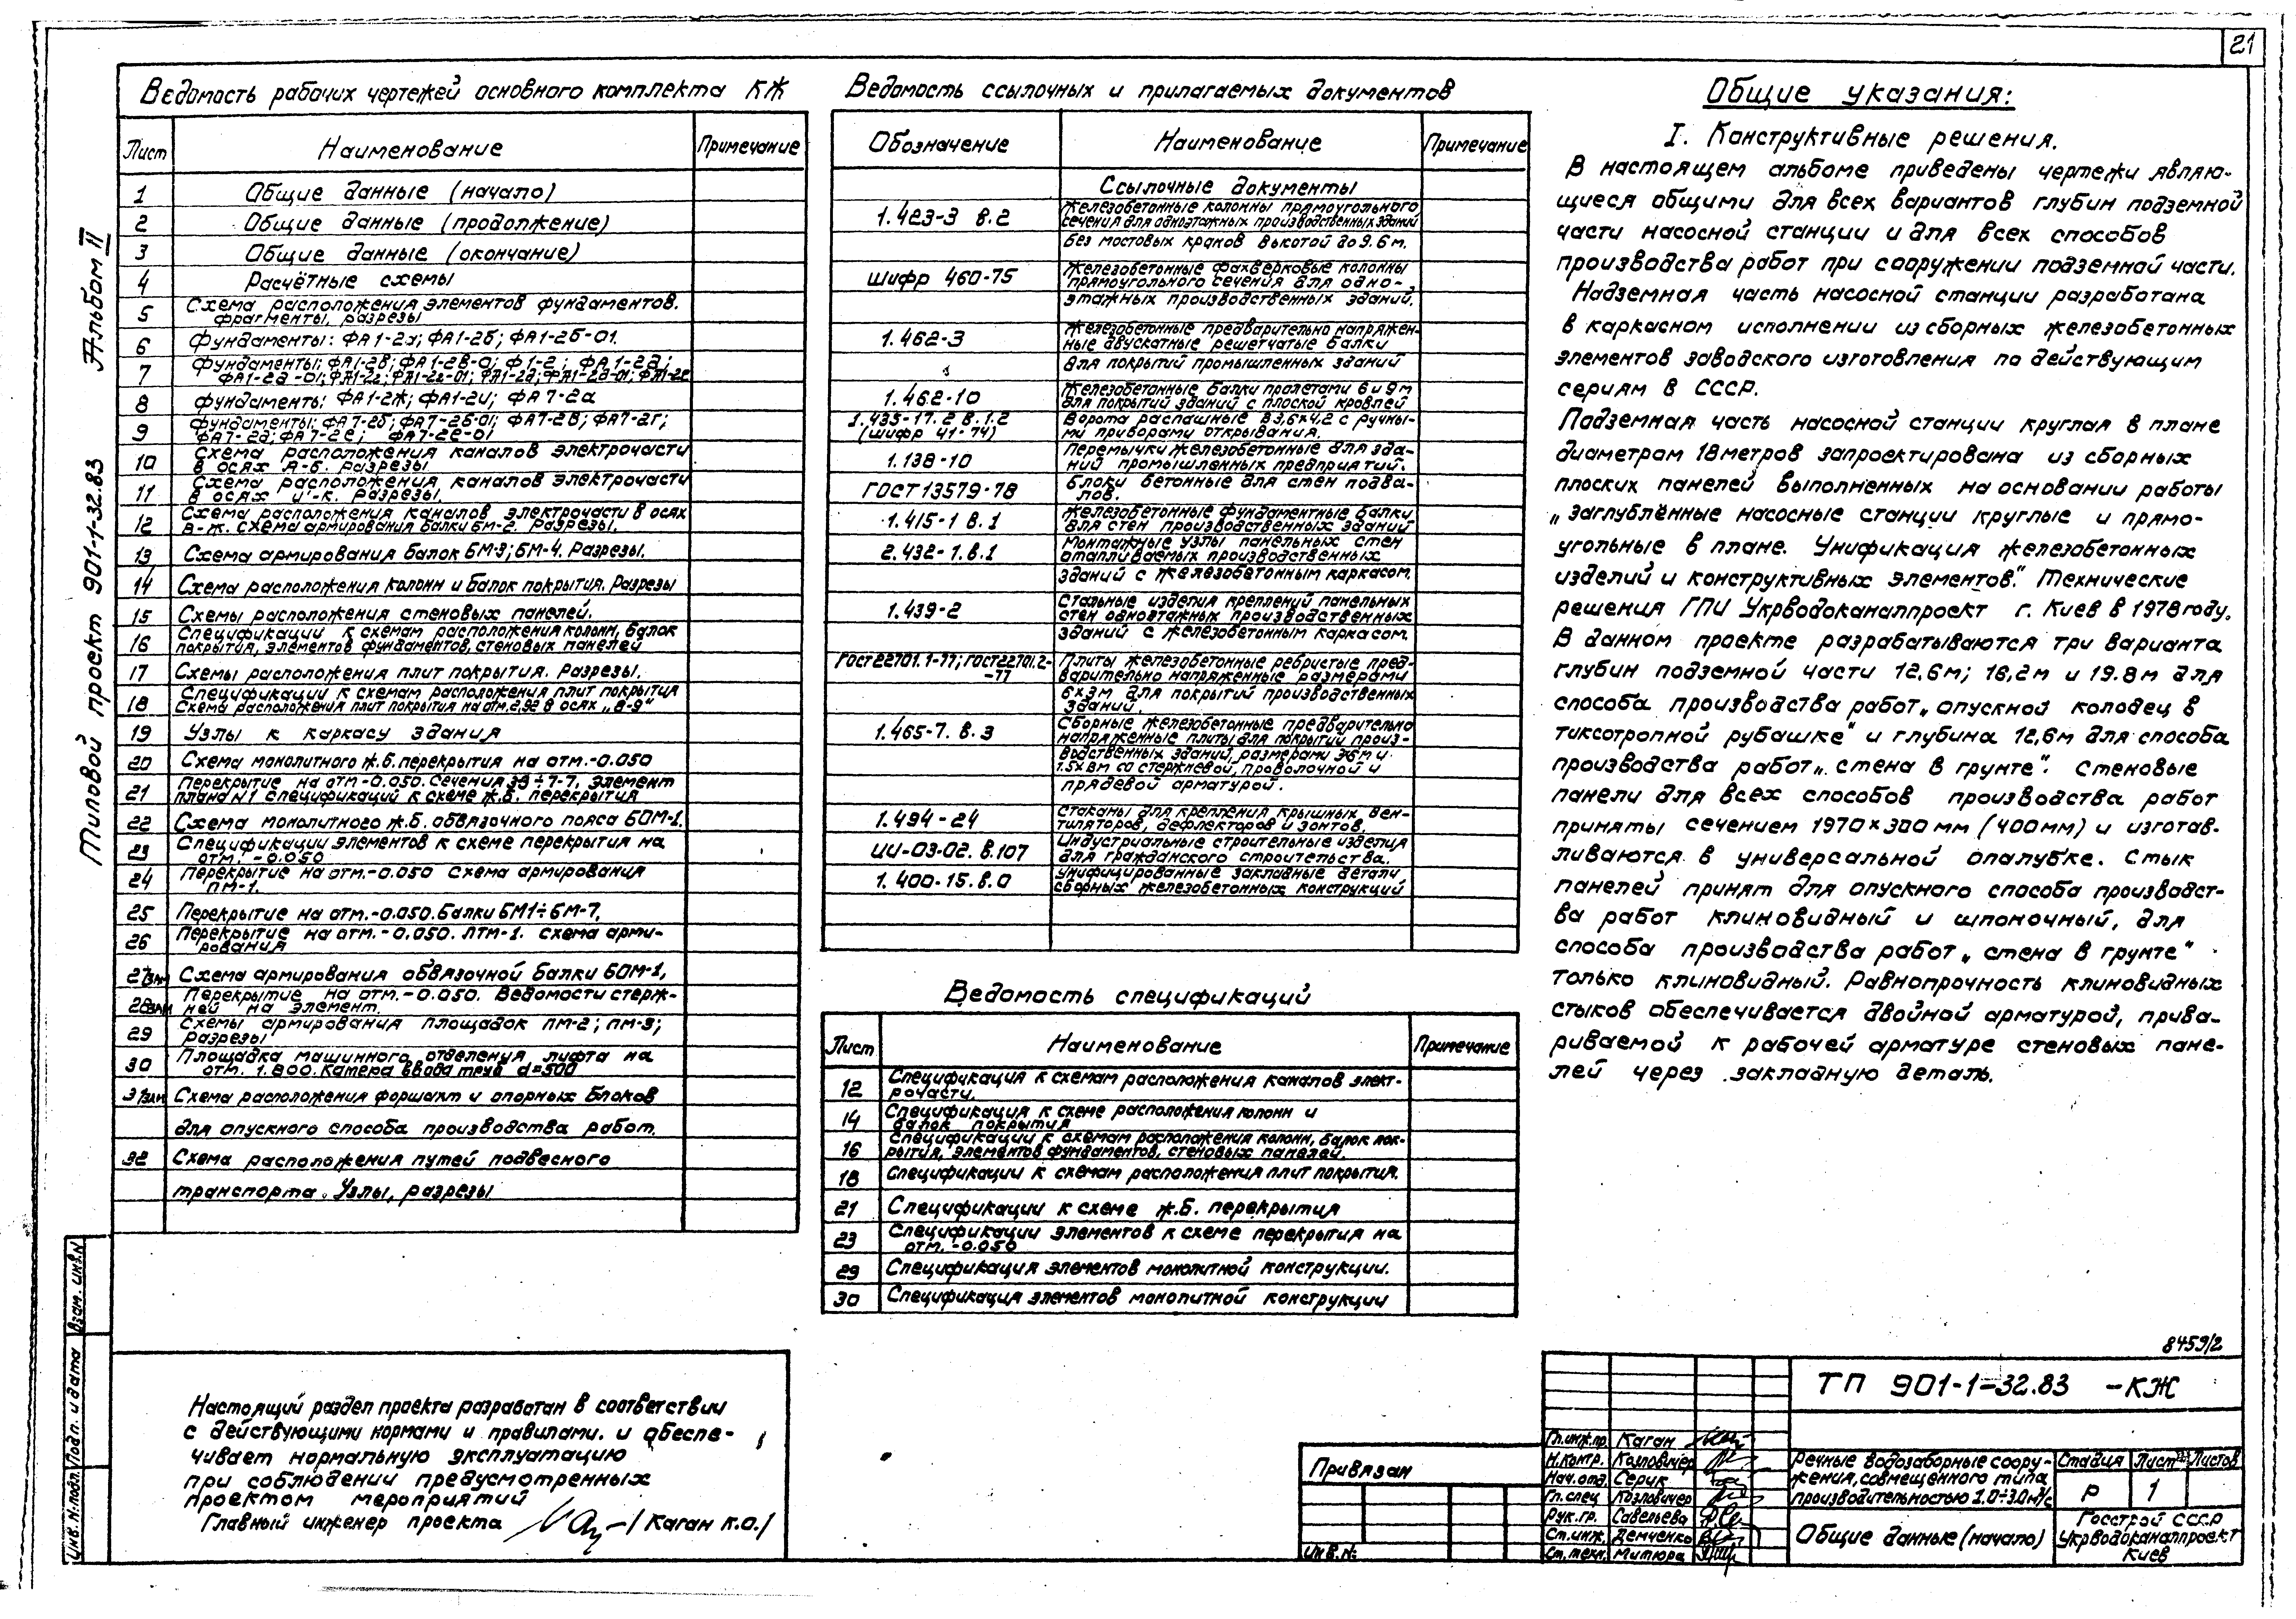 21
Альбом II
Типовой проект 901-1-32.83
Ведомость рабочих чертежей основного комплекта КЖ
Лист Наименование Примечание
1 Общие данные (начало)
2 Общие данные (продолжение)
3 Общие данные (окончание)
4 Расчётные схемы
5 Схема расположения элементов фундаментов.
фрагменты, разрезы
6 Фундаменты: ФА1-2а; ФА1-2б; ФА1-2б-01.
7 Фундаменты: ФА1-2в; ФА1-2в-0; Ф1-2; ФА1-2д;
8 Фундаменты: ФА1-2ж; ФА1-2и; ФА7-2а
9 Фундаменты: ФА7-2б; ФА7-2б-01; ФА7-2в; ФА7-2г;
ФА7-2д; ФА7-2е; ФА7-2е-01
10 Схема расположения каналов электрочасти
в осях А-Б. Разрезы
11 Схема расположения каналов электрочасти
в осях и'-к. Разрезы.
12 Схема расположения каналов электрочасти в осях
в-ж. Схема армирования балки БМ-2. Разрезы.
13 Схема армирования балок БМ-3; БМ-4. Разрезы.
14 Схема расположения колонн и балок покрытия. Разрезы
15 Схемы расположения стеновых панелей.
16 Спецификации к схемам расположения колонн, балок
покрытия, элементов фундаментов, стеновых панелей
17 Схемы расположения плит покрытия. Разрезы.
18 Спецификации к схемам расположения плит покрытия
Схема расположения плит покрытия на отм. 2,92 в осях „8-9"
19 Узлы к каркасу здания
20 Схема монолитного ж.б. перекрытия на отм.-0.050
21 Перекрытие на отм-0.050. Сечения ÷7-7, элемент
плана N1 спецификаций к схеме ж.б. перекрытия
22 Схема монолитного ж.б. обвязочного пояса БОМ-1.
23 Спецификации элементов к схеме перекрытия на
отм. -0.050
24 Перекрытие на отм.-0.050 Схема армирования
ПМ-1.
25 Перекрытие на отм.-0.050. Балки БМ1÷БМ-7.
26 Перекрытие на отм.-0.050. ЛТМ-1. Схема арми-
рования
27зам Схема армирования обвязочной балки БОМ-1,
28зам Перекрытие на отм.-0.050. Ведомости стерж-
ней на элемент.
29 Схемы армирования площадок ПМ-2; ПМ-3;
Разрезы
30 Площадка машинного отделения лифта на
отм. 1.800. Камера ввода труб d=500
31зам Схема расположения форшахт и опорных блоков
для опускного способа производства работ.
32 Схема расположения путей подвесного
транспорта. Узлы, разрезы
Ведомость ссылочных и прилагаемых документов
Обозначение Наименование Примечание
Ссылочные документы
1.423-3 в.2 Железобетонные колонны прямоугольного
сечения для одноэтажных производственных зданий
без мостовых кранов высотой до 9.6 м.
шифр 460-75 Железобетонные фахверковые колонны
прямоугольного сечения для одно-
этажных производственных зданий.
1.462-3 Железобетонные предварительно напряжен-
ные двускатные решетчатые балки
для покрытий промышленных зданий
1.462-10 Железобетонные балки пролетами 6 и 9м
для покрытий зданий с плоской кровлей
1.435-17.2 в.1.2 Ворота распашные в 3,6×4,2 с ручны-
(шифр 41-74) ми приборами открывания.
1.138-10 Перемычки железобетонные для зда-
ний промышленных предприятий.
ГОСТ 13579-78 Блоки бетонные для стен подва-
лов.
1.415-1 в.1 Железобетонные фундаментные балки
для стен производственных зданий
2.432-1.в.1 Монтажные узлы панельных стен
отапливаемых производственных
зданий с железобетонным каркасом.
1.439-2 Стальные изделия креплений панельных
стен одноэтажных производственных
зданий с железобетонным каркасом.
ГОСТ22701.1-77; ГОСТ22701.2- Плиты железобетонные ребристые пред-
-77 варительно напряженные размерами
6×3м для покрытий производственных
зданий
1.465-7. в.3 Сборные железобетонные предварительно
напряженные плиты для покрытий произ-
водственных зданий размерами 3×6м и
1.5×6м со стержневой, проволочной и
прядевой арматурой.
1.494-24 Стаканы для крепления крышных вен-
тиляторов, дефлекторов и зонтов.
ИИ-03-02. в.107 Индустриальные строительные изделия
для гражданского строительства.
1.400-15.в.0 Унифицированные закладные детали
сборных железобетонных конструкций
Ведомость спецификаций
Лист Наименование Примечание
12 Спецификация к схемам расположения каналов элект-
рочасти.
14 Спецификация к схеме расположения колонн и
балок покрытия
16 Спецификации к схемам расположения колонн, балок пок-
рытия, элементов фундаментов, стеновых панелей.
18 Спецификации к схемам расположения плит покрытия.
21 Спецификации к схеме ж.б. перекрытия
23 Спецификации элементов к схеме перекрытия на
отм. -0.050
29 Спецификация элементов монолитной конструкции.
30 Спецификация элементов монолитной конструкции
Общие указания:
I. Конструктивные решения.
В настоящем альбоме приведены чертежи являю-
щиеся общими для всех вариантов глубин подземной
части насосной станции и для всех способов
производства работ при сооружении подземной части.
Надземная часть насосной станции разработана
в каркасном исполнении из сборных железобетонных
элементов заводского изготовления по действующим
сериям в СССР.
Подземная часть насосной станции круглая в плане
диаметром 18 метров запроектирована из сборных
плоских панелей выполненных на основании работы
„заглублённые насосные станции круглые и прямо-
угольные в плане. Унификация железобетонных
изделий и конструктивных элементов." Технические
решения ГПИ Укрводоканалпроект г. Киев в 1978 году.
В данном проекте разрабатываются три варианта
глубин подземной части 12.6м; 16,2м и 19.8м для
способа производства работ „опускной колодец в
тиксотропной рубашке" и глубина 12,6м для способа
производства работ „стена в грунте". Стеновые
панели для всех способов производства работ
приняты сечением 1970×300мм (400мм) и изготав-
ливаются в универсальной опалубке. Стык
панелей принят для опускного способа производст-
ва работ клиновидный и шпоночный, для
способа производства работ „стена в грунте"
только клиновидный. Равнопрочность клиновидных
стыков обеспечивается двойной арматурой, прива-
риваемой к рабочей арматуре стеновых пане-
лей через закладную деталь.
Настоящий раздел проекта разработан в соответствии
с действующими нормами и правилами. и обеспе-
чивает нормальную эксплуатацию
при соблюдении предусмотренных
проектом мероприятий
Главный инженер проекта /Каган К.О./
Взам. инв.N
Подп. и дата
Инв. N подл.
Привязан
Инв. N:
8459/2
ТП 901-1-32.83 -КЖ
Гл.инж.пр. Каган
Н.контр. Козловичер
Нач.отд. Серик
Гл.спец Козловичер
Рук.гр. Савельева
Ст.инж. Демченко
Ст.техн. Митюра
Речные водозаборные соору-
жения, совмещённого типа
производительностью 1.0÷3.0м³/с
Стадия Лист Листов
Р 1
Общие данные (начало)
Госстрой СССР
Укрводоканалпроект
Киев